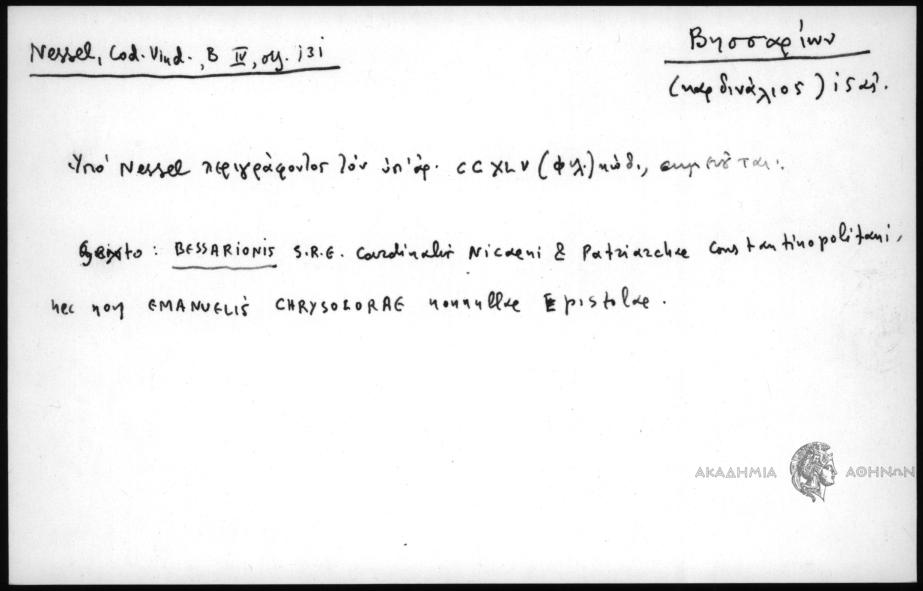 Nessel, Cod. Vind., B IV, σ. 131
Βησσαρίων
(καρδινάλιος) ἰδαλ.
Ὑπό Nessel περιγράφοντος τόν ὑπ' ἀρ. CCXLV (φιλ.) κώδ., σημειοῦται:
Sexto: BESSARIONIS S.R.E. Cardinalis Nicaeni & Patriarchae Constantinopolitani,
nec non EMANUELIS CHRYSOLORAE nonnullae Epistolae.
ΑΚΑΔΗΜΙΑ ΑΘΗΝΩΝ